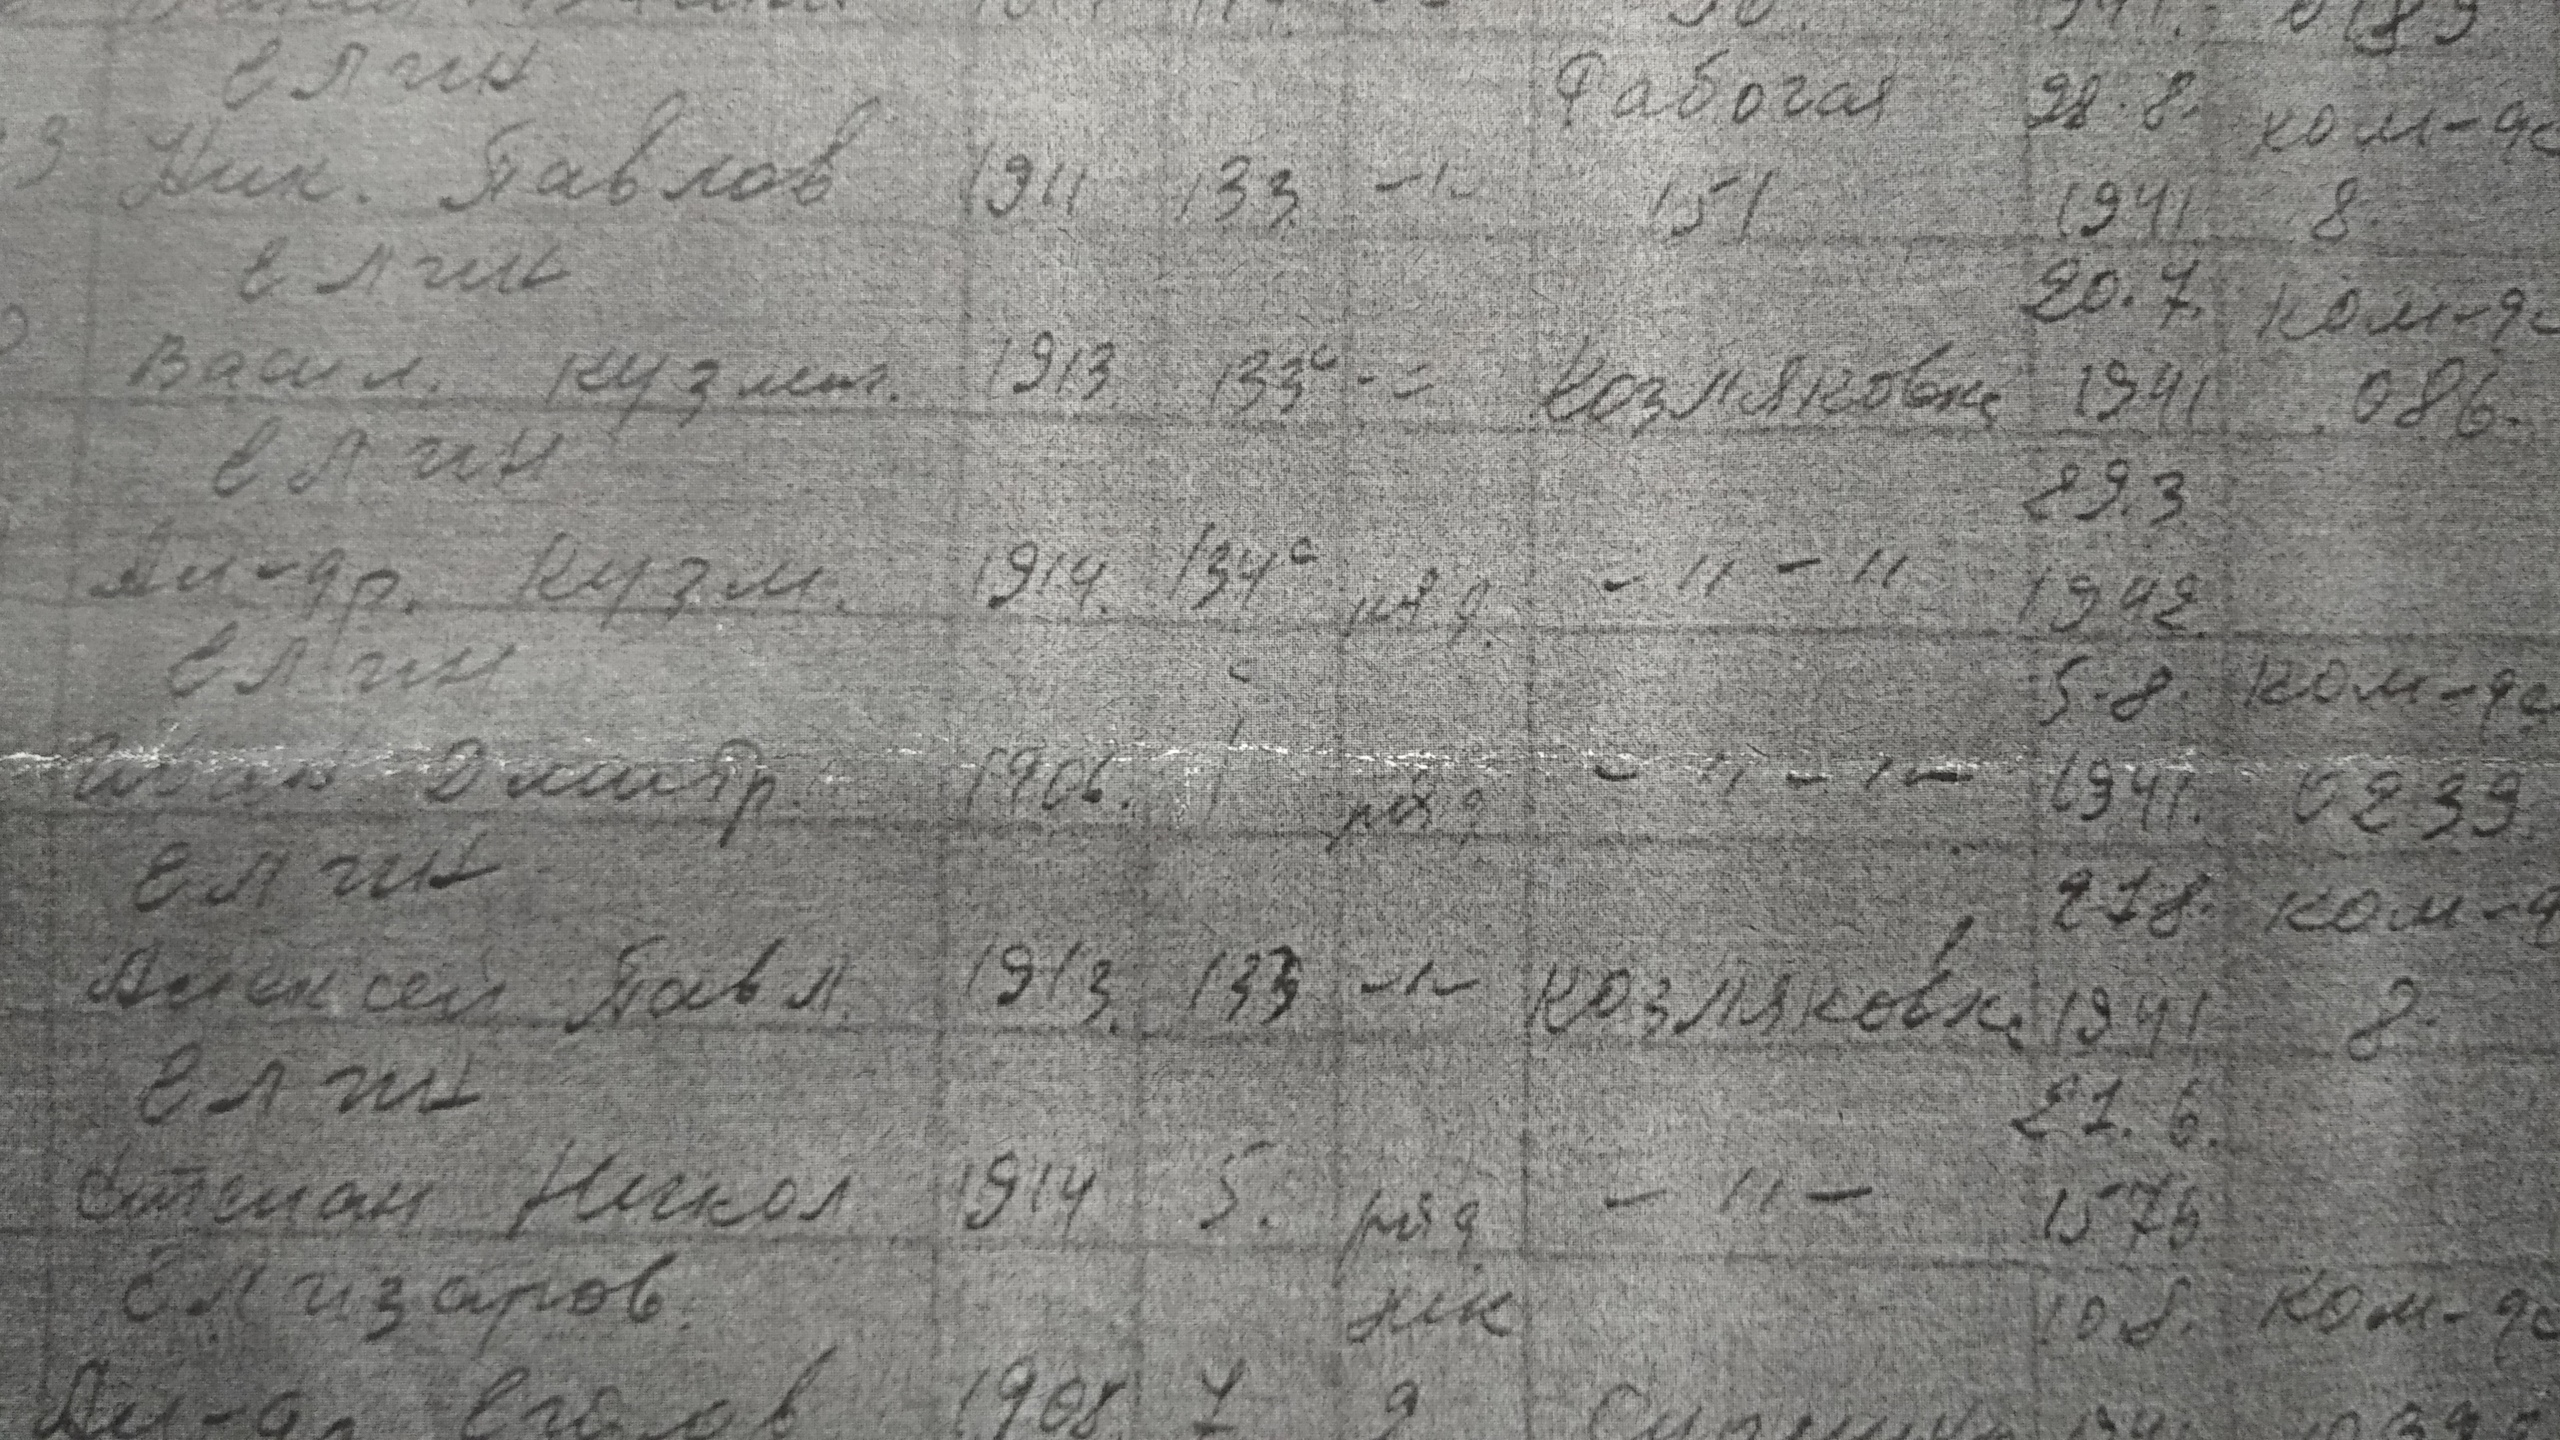 0189
Елин Рабочая 28.8. ком-да
Ник. Павлов 1911 133 -"- 151 1941 8.
Елин 20.7. ком-да
Васил. Кузмич. 1913 133с -"- Козляковка 1941 086.
Елин 29.3
Ал-др. Кузм. 1914. 134с ряд. - " - " 1942
Елин 5.8. ком-да
Иван Дмитр. 1906. ряд - " - " - 1941. 0239
Елин 27.8. ком-д
Алексей Павл. 1913. 133 -"- Козляковка 1941 8.
Елин 21.6.
Степан Никол 1914 5. ряд - " -
Елизаров. мк 10.8. ком-да
Ал-др Еголов 1908 7 9